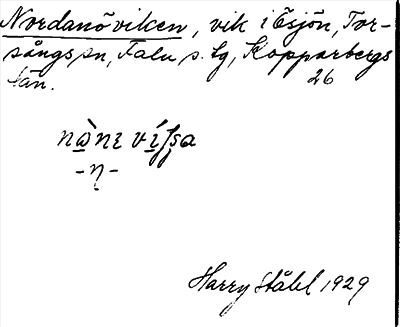 Nordanöviken, vik i Ösjön, Tor-
sångs sn, Falu s. lg, Kopparbergs
län. 26
Harry Ståhl 1929